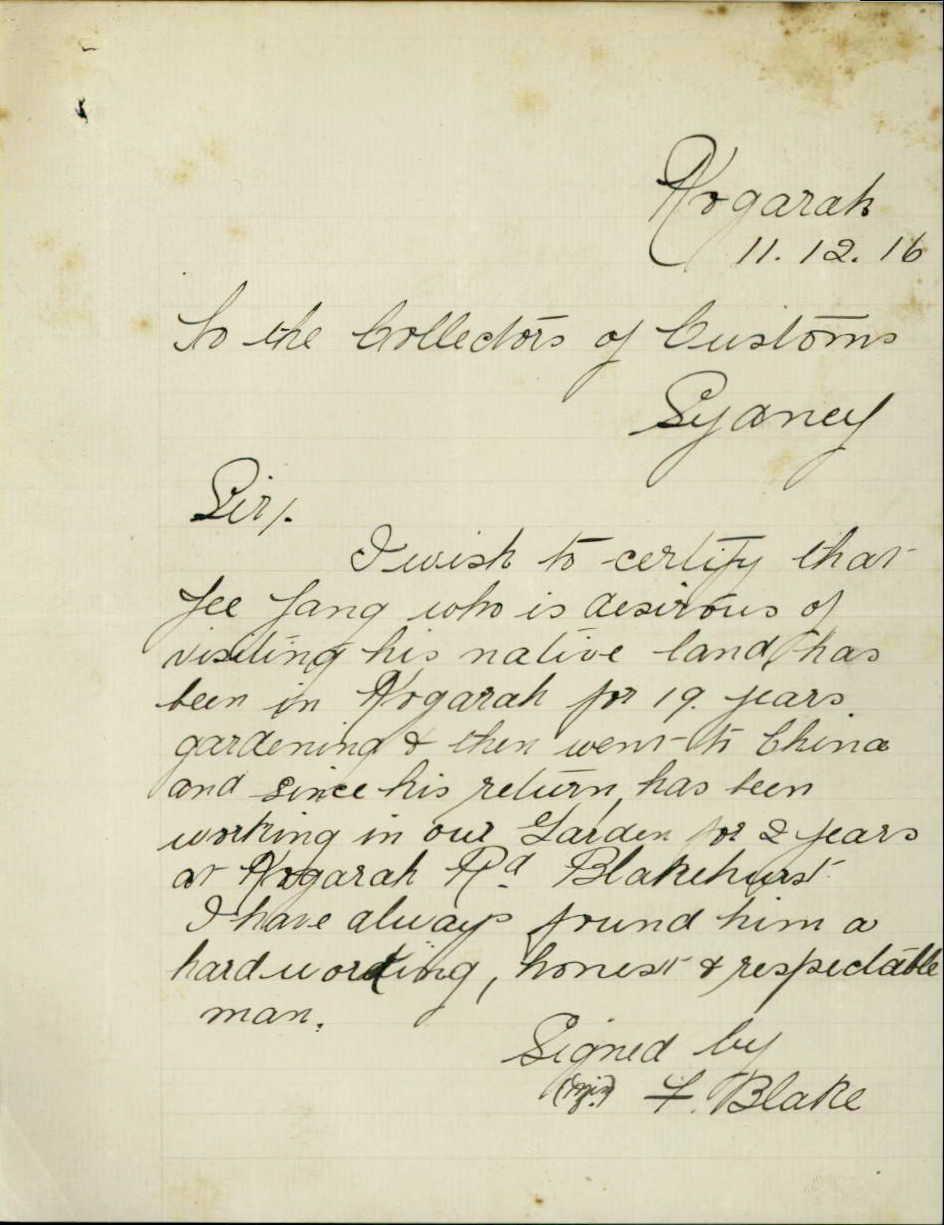 Kogarah
11. 12. 16
To the Collectors of Customs
Sydney
Sir/.
I wish to certify that
Jee Jang who is desirous of
visiting his native land, has
been in Kogarah for 19. years
gardening & then went to China
and since his return, has been
working in our Garden for 2 years
at Kogarah Rd. Blakehurst.
I have always found him a
hardworking, honest & respectable
man.
Signed by
F. Blake